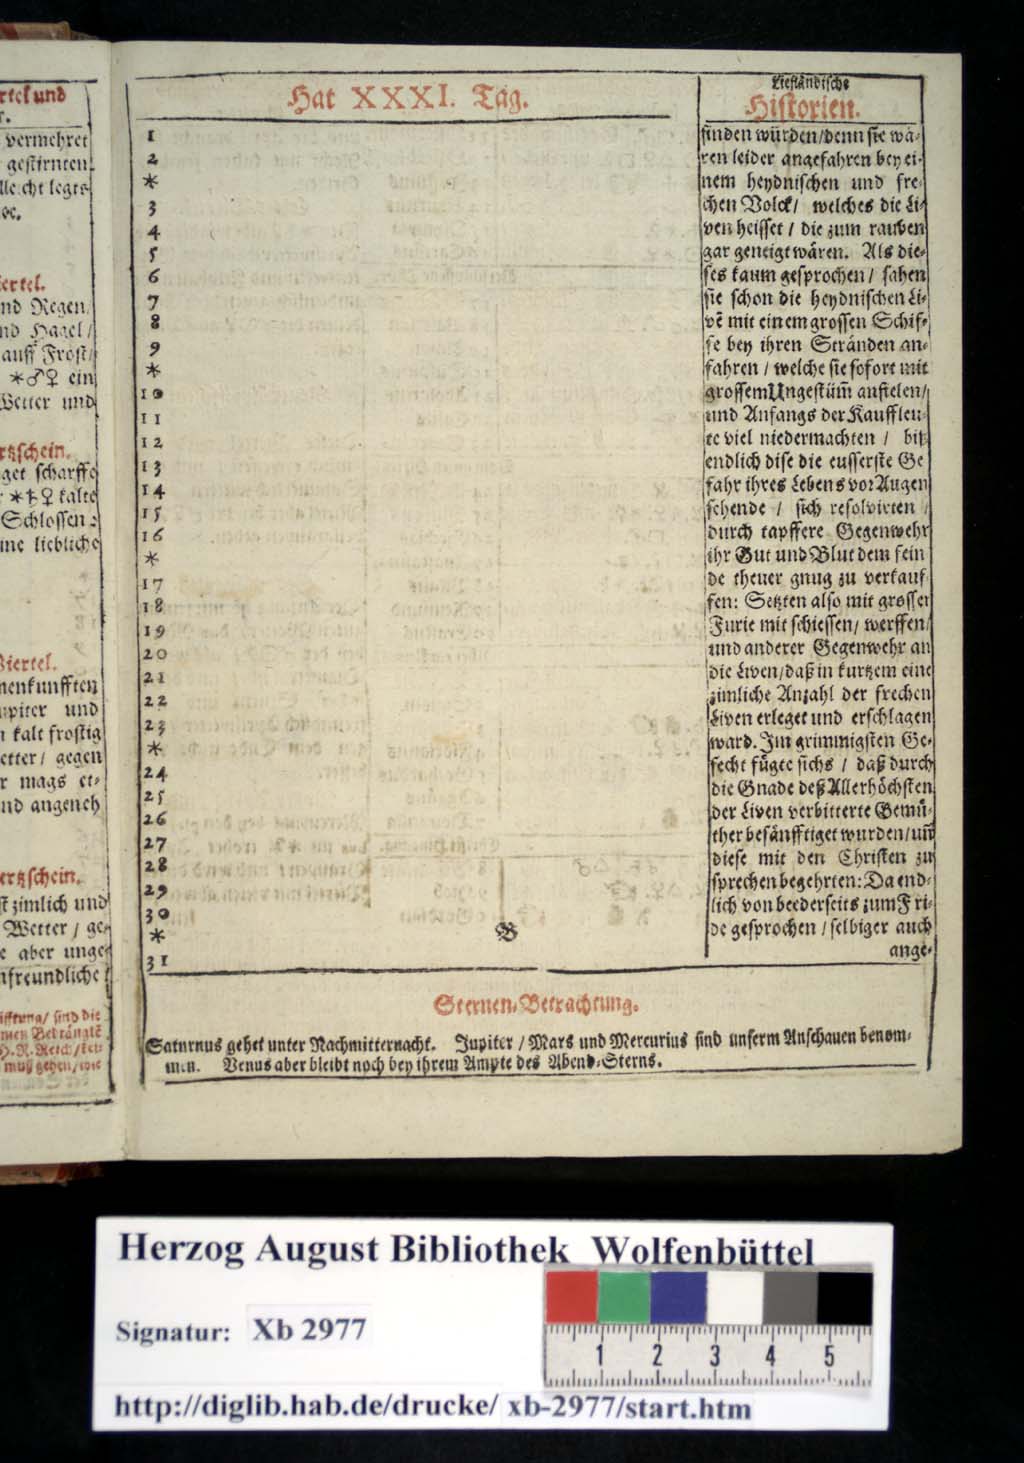 rtel und
r.
vermehret
gestirnten
lleicht legts
ec.
iertel.
nd Regen
nd Hagel /
auff Frost /
*♂♀ ein
Wetter und
rtzschein.
get scharffe
*♄♀ kalte
Schlossen:
ine liebliche
Viertel.
menkunfften
upiter und
n kalt frostig
etter / gegen
r mags et-
nd angeneh
ertzschein.
st zimlich und
Wetter / ge-
e aber unge-
nfreundliche
ifftung / sind die
men Bedrängte
H. R. Reich / sein
muß gehen / wie
Hat XXXI. Tag.
1
2
*
3
4
5
6
7
8
9
*
10
11
12
13
14
15
16
*
17
18
19
20
21
22
23
*
24
25
26
27
28
29
30
*
31
B
Liefländische
Historien.
finden würden / denn sie wä-
ren leider angefahren bey ei-
nem heydnischen und fre-
chen Volck / welches die Li-
ven heisset / die zum rauben
gar geneigt wären. Als die-
ses kaum gesprochen / sahen
sie schon die heydnischen Li-
vē mit einem grossen Schif-
fe bey ihren Stränden an-
fahren / welche sie sofort mit
grossem Ungestüm̄ anfielen /
und Anfangs der Kauffleu-
te viel niedermachten / biß
endlich dise die eusserste Ge
fahr ihres Lebens vor Augen
sehende / sich resolvirten /
durch tapffere Gegenwehr
ihr Gut und Blut dem fein
de theuer gnug zu verkauf
fen: Setzten also mit grosser
Furie mit schiessen / werffen /
und anderer Gegenwehr an
die Liven / daß in kurtzem eine
zimliche Anzahl der frechen
Liven erleget und erschlagen
ward. Im grimmigsten Ge-
fecht fügte sichs / daß durch
die Gnade deß Allerhöchsten
der Liven verbitterte Gemü-
ther besänfftiget wurden / uñ
diese mit den Christen zu
sprechen begehrten: Da end-
lich von beederseits zum Fri-
de gesprochen / selbiger auch
ange-
Sternen-Betrachtung.
Saturnus gehet unter Nachmitternacht. Jupiter / Mars und Mercurius sind unserm Anschauen benom-
men. Venus aber bleibt noch bey ihrem Ampte des Abend-Sterns.
Herzog August Bibliothek Wolfenbüttel
Signatur: Xb 2977
1 2 3 4 5
http://diglib.hab.de/drucke/ xb-2977/start.htm